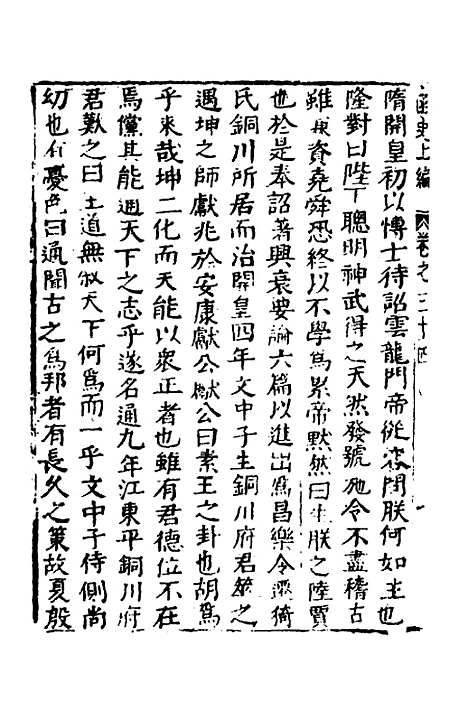 函史上編　卷之三十四
隋開皇初以博士待詔雲龍門帝從容問朕何如主也
隆對曰陛下聰明神武得之天然發號施令不盡稽古
雖負資堯舜恐終以不學爲累帝默然曰生朕之陸賈
也於是奉詔著興衰要論六篇以進出爲昌樂令遷猗
氏銅川所居而治開皇四年文中子生銅川府君筮之
遇坤之師獻兆於安康獻公獻公曰素王之卦也胡爲
乎來哉坤二化而天能以衆正者也雖有君德位不在
焉儻其能通天下之志乎遂名通九年江東平銅川府
君歎之曰王道無敘天下何爲而一乎文中子侍側尚
幼也有憂色曰通聞古之爲邦者有長久之策故夏殷